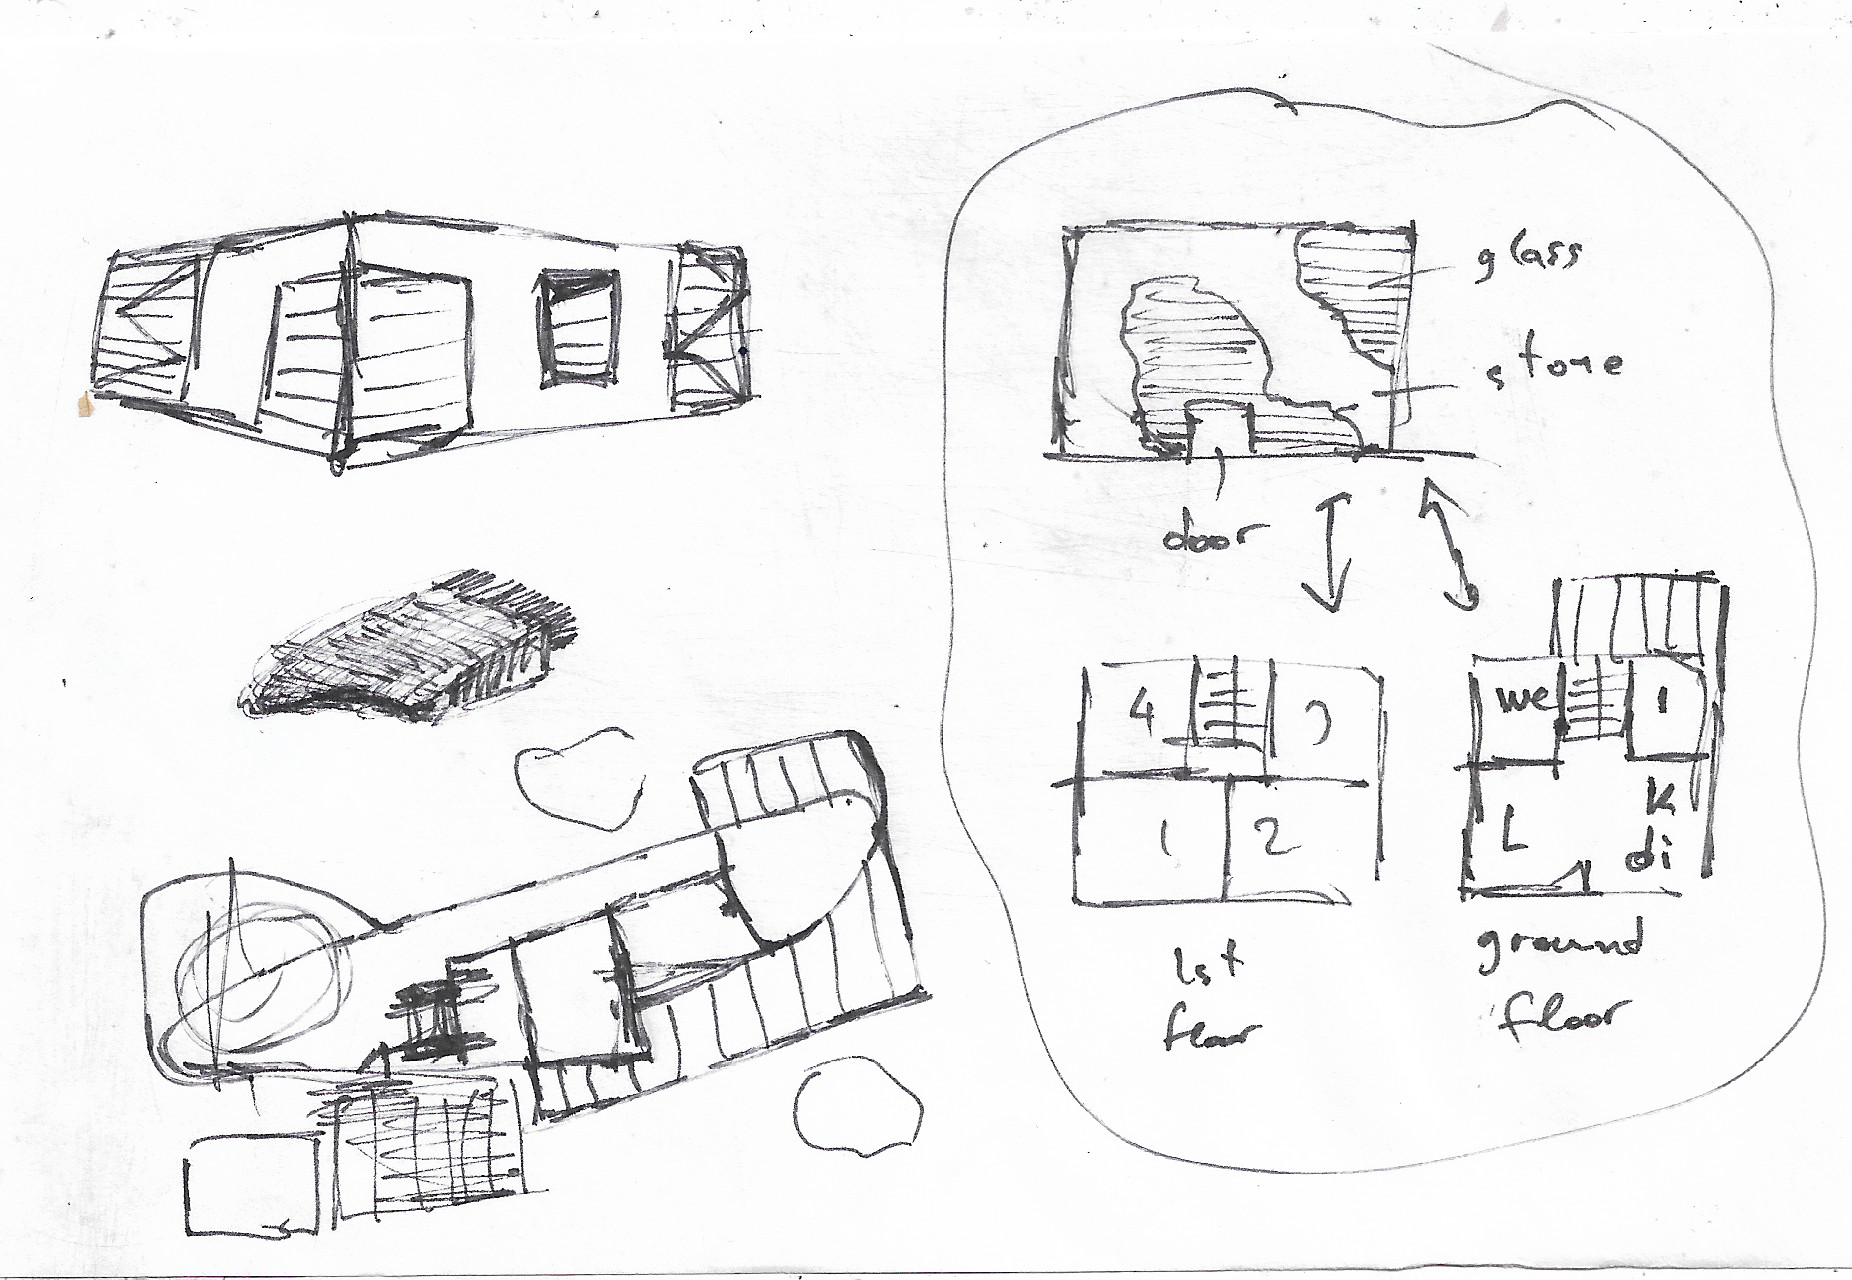 glass
stone
door
4
3
1
2
1st
floor
we
1
L
K
di
ground
floor